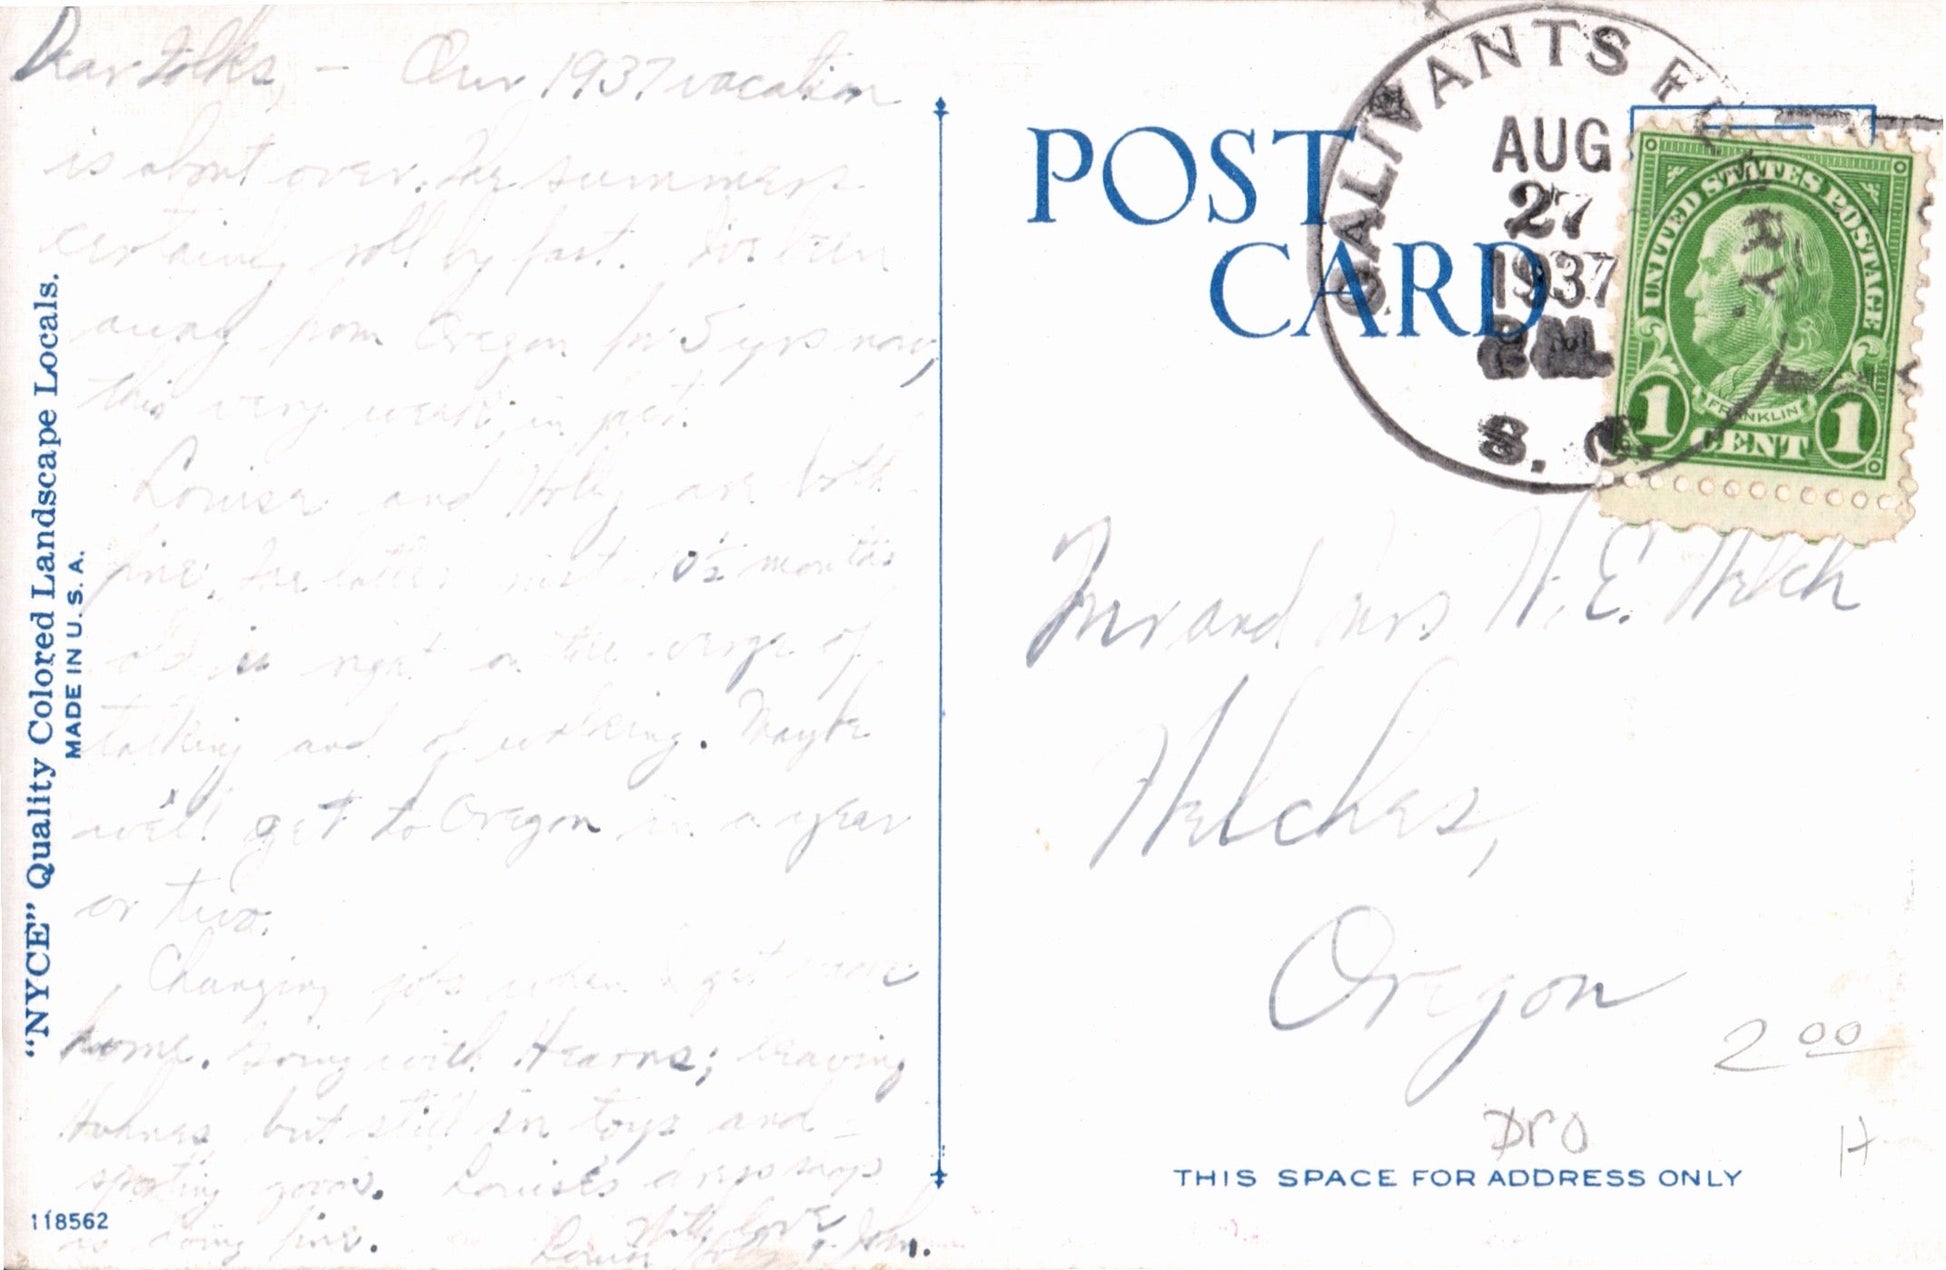 Dear Folks, - Our 1937 vacation
is about over. The summers
certainly roll by fast. I've been
away from Oregon for 5 yrs now,
this very week, in fact.
Louise and Holly are both
fine. The latter just 10½ months
old is right on the verge of
talking and of walking. Maybe
we'll get to Oregon in a year
or two.
Changing jobs when I get
home. Going with Hearns; leaving
but still in toys and
sporting goods. Louise's dress shop
is doing fine. With love
Louise Holly & John.
"NYCE" Quality Colored Landscape Locals.
MADE IN U.S.A.
118562
POST CARD
GALIVANTS FERRY.
AUG
27
1937
P.M.
S. C.
UNITED STATES POSTAGE
FRANKLIN
1 CENT 1
Mr and Mrs H. E. Welch
Welches,
Oregon
2 00
DPO
H
THIS SPACE FOR ADDRESS ONLY